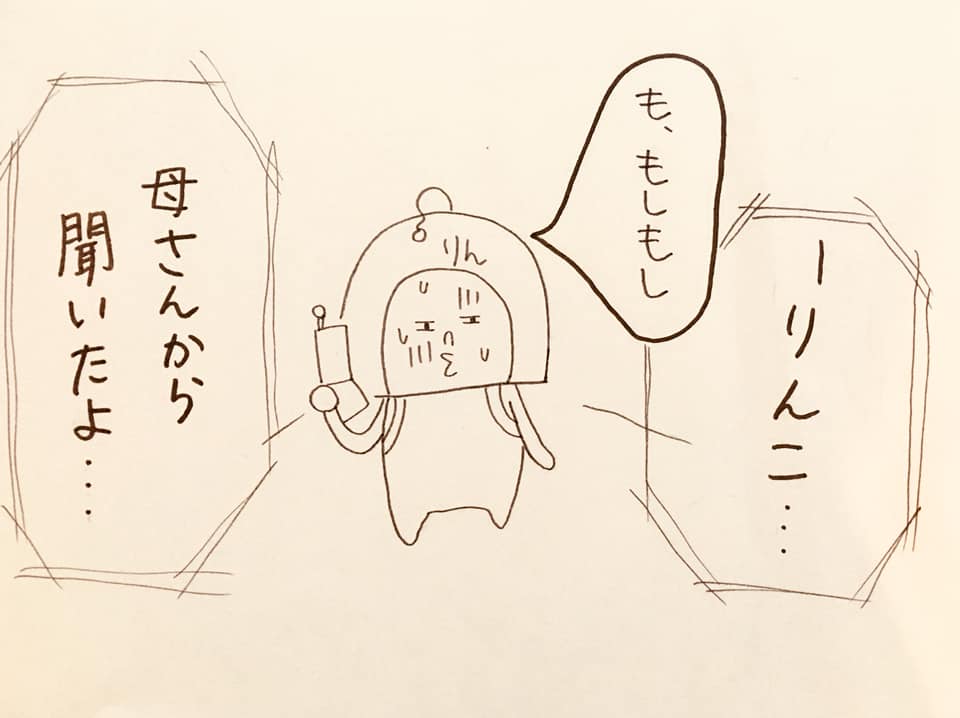 も、もしもし
ーりんこ…
りん
母さんから
聞いたよ…